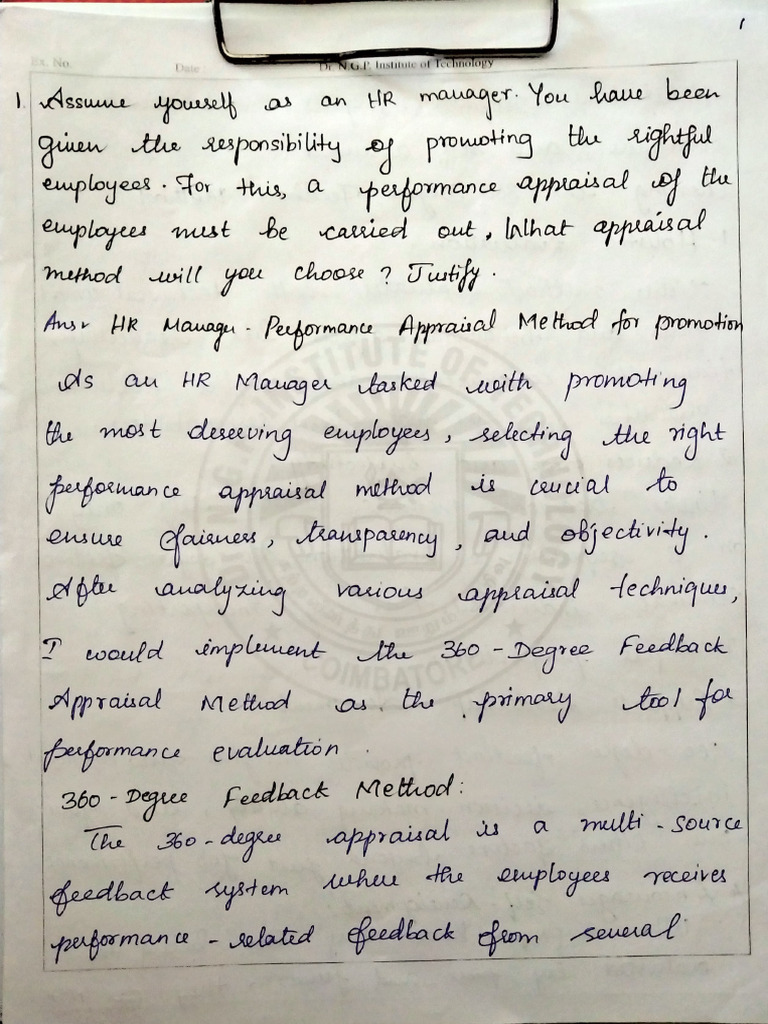 1
Ex. No. Date : Dr. N.G.P. Institute of Technology
1. Assume yourself as an HR manager. You have been
given the responsibility of promoting the rightful
employees. For this, a performance appraisal of the
employees must be carried out, What appraisal
method will you choose? Justify.
Ans:- HR Manager - Performance Appraisal Method for promotion
As an HR Manager tasked with promoting
the most deserving employees, selecting the right
performance appraisal method is crucial to
ensure fairness, transparency, and objectivity.
After analyzing various appraisal techniques,
I would implement the 360-Degree Feedback
Appraisal Method as the primary tool for
performance evaluation.
360-Degree Feedback Method:
The 360-degree appraisal is a multi-source
feedback system where the employees receives
performance-related feedback from several